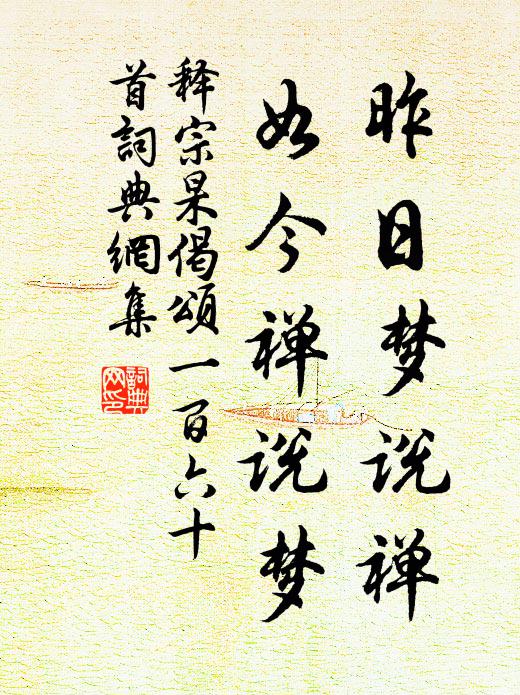 昨日梦说禅
如今禅说梦
释宗杲偈颂一百六十
首词典網集
詞典
网印